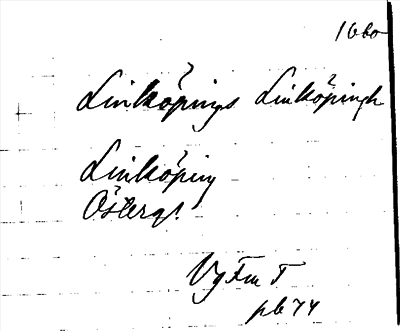 1660
Linköpings Linköpingh
Linköping
Östergl.
VgFm T
pb 74